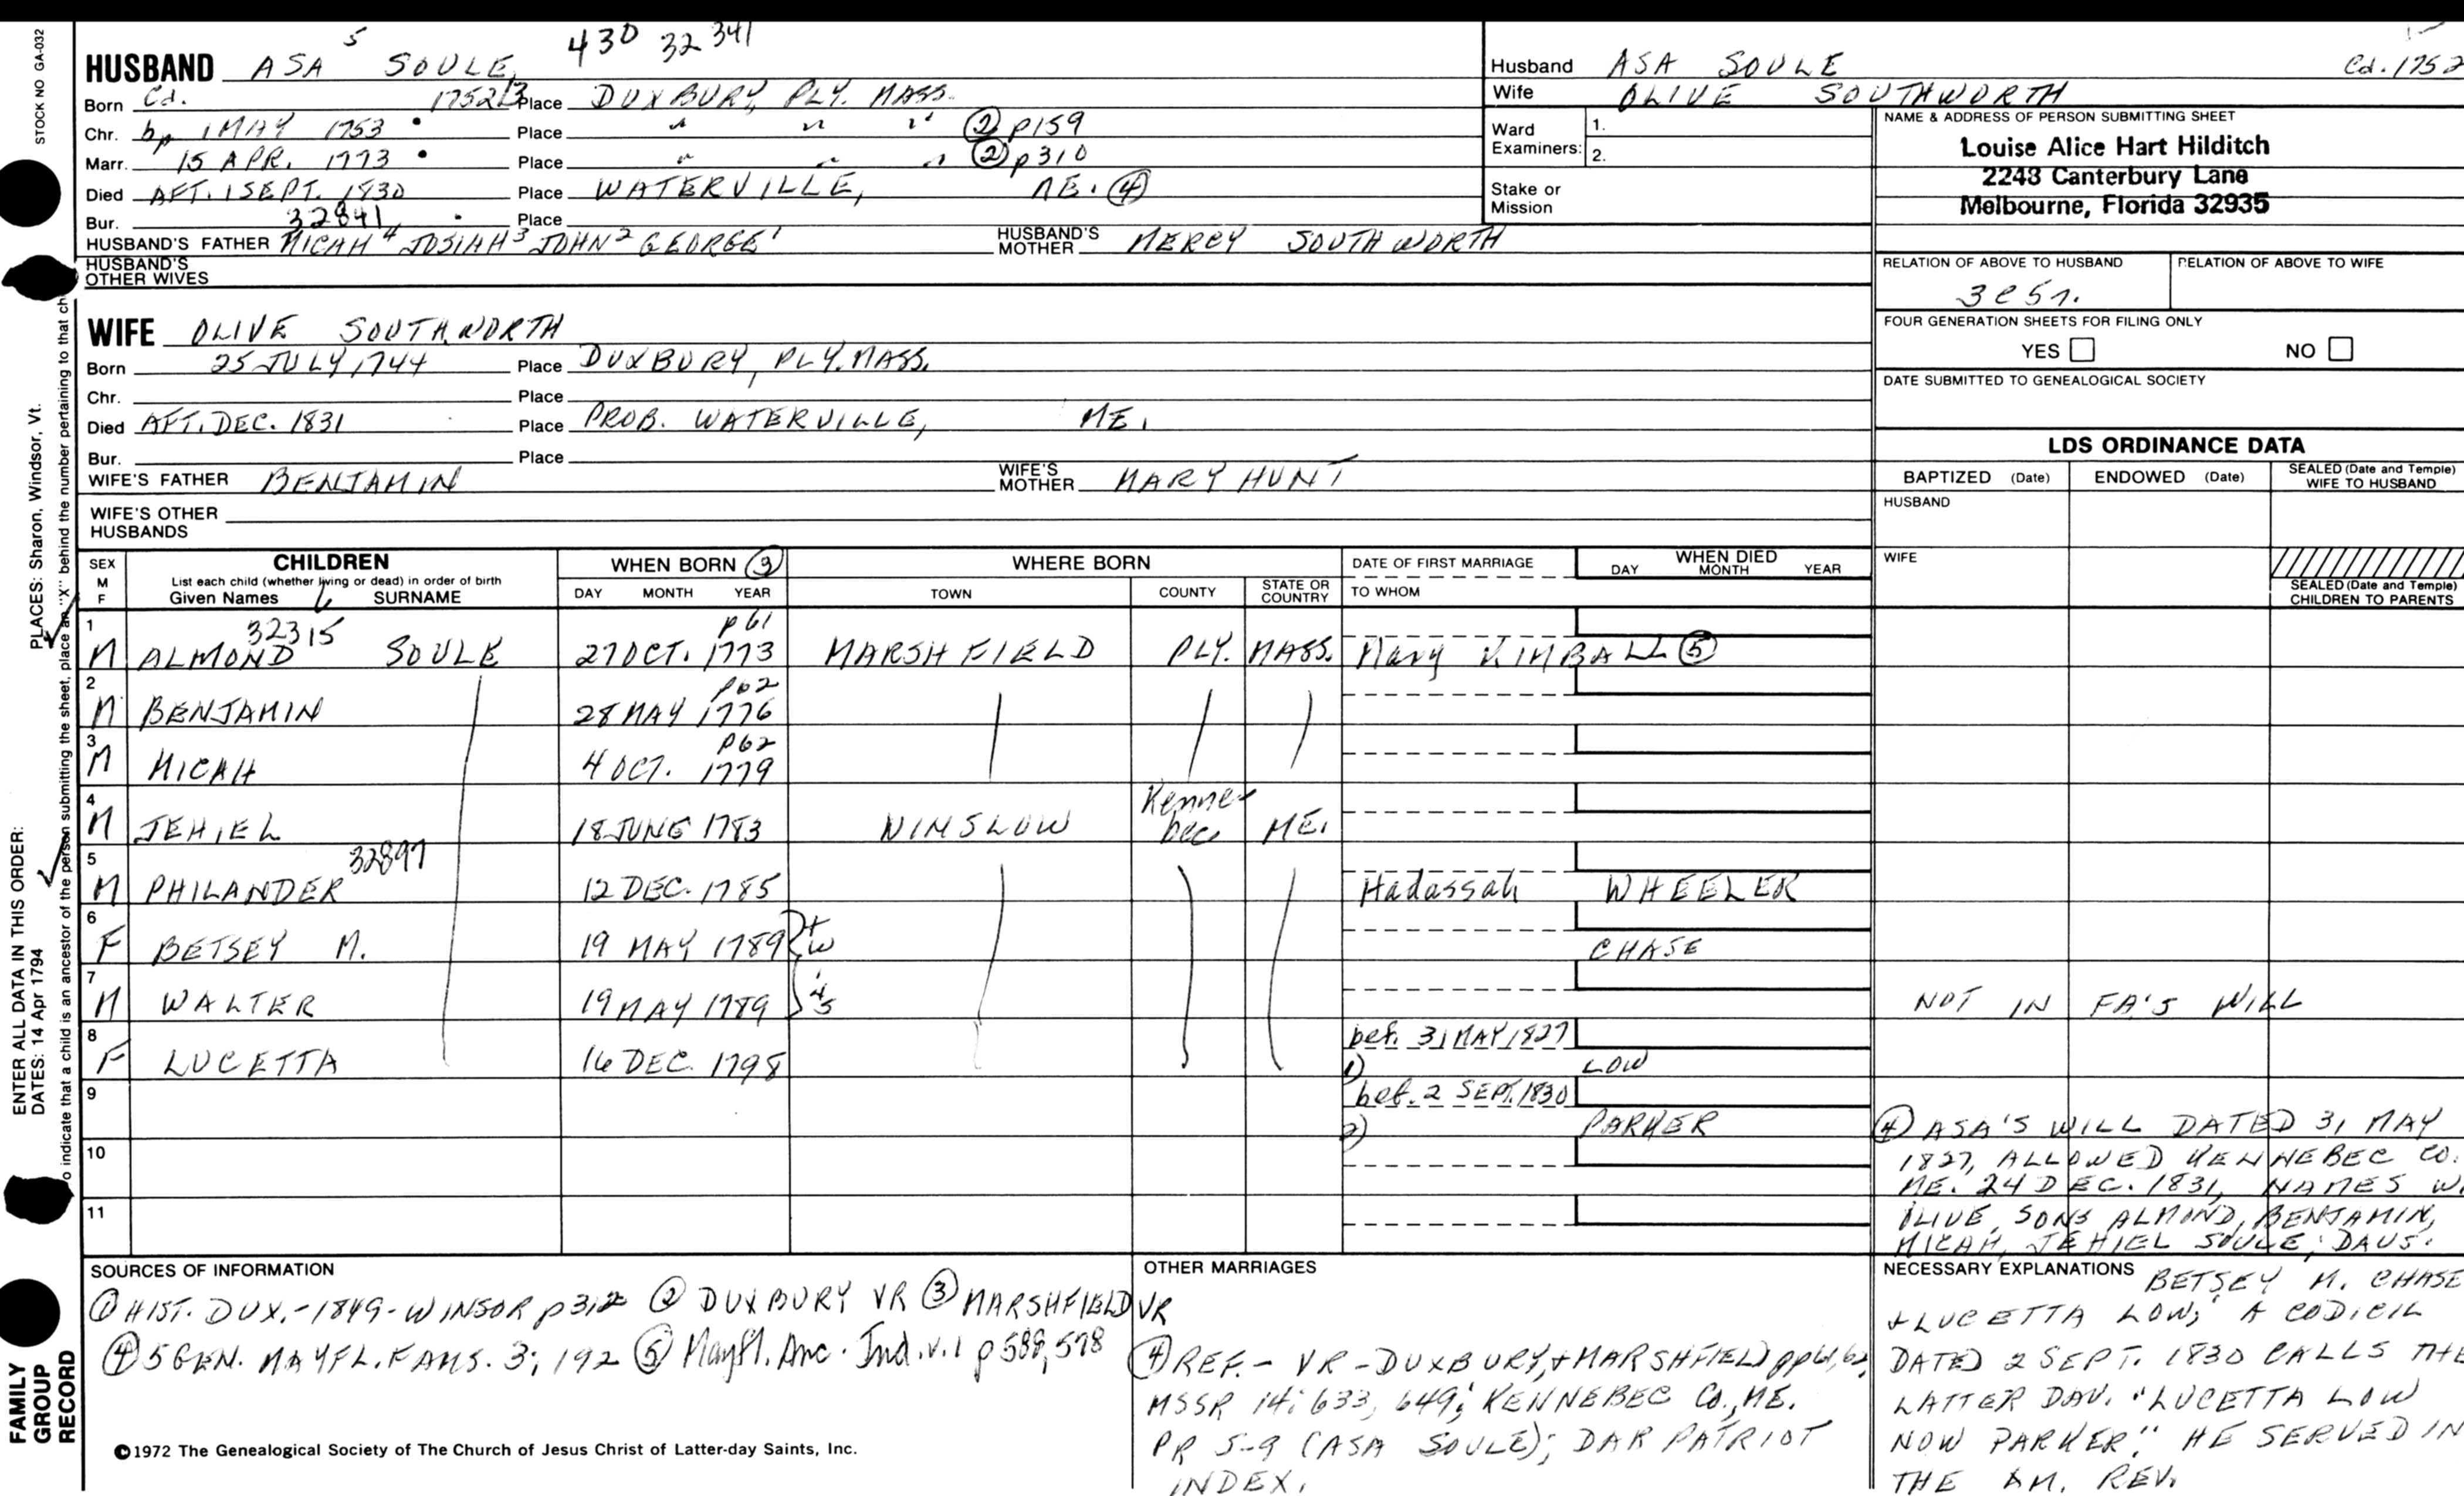 STOCK NO GA-032
PLACES: Sharon, Windsor, Vt.
ENTER ALL DATA IN THIS ORDER:
DATES: 14 Apr 1794
o indicate that a child is an ancestor of the person submitting the sheet, place an "X" behind the number pertaining to that ch
FAMILY
GROUP
RECORD
HUSBAND ASA 5 SOULE, 430 32 341
Born Cd. 1752/3 Place DUXBURY, PLY. MASS.
Chr. bp 1 MAY 1753 Place " " " ② p159
Marr. 15 APR. 1773 Place " " " ② p310
Died AFT. 1 SEPT. 1830 Place WATERVILLE, ME. ④
Bur. 32841 Place
HUSBAND'S FATHER MICAH 4 JOSIAH 3 JOHN 2 GEORGE 1 HUSBAND'S MOTHER MERCY SOUTHWORTH
HUSBAND'S
OTHER WIVES
WIFE OLIVE SOUTHWORTH
Born 25 JULY 1744 Place DUXBURY, PLY. MASS.
Chr. Place
Died AFT. DEC. 1831 Place PROB. WATERVILLE, ME.
Bur. Place
WIFE'S FATHER BENJAMIN WIFE'S MOTHER MARY HUNT
WIFE'S OTHER
HUSBANDS
Husband ASA SOULE Cd. 1752
Wife OLIVE SOUTHWORTH
Ward
Examiners: 1.
2.
Stake or
Mission
NAME & ADDRESS OF PERSON SUBMITTING SHEET
Louise Alice Hart Hilditch
2243 Canterbury Lane
Melbourne, Florida 32935
RELATION OF ABOVE TO HUSBAND RELATION OF ABOVE TO WIFE
3c5r.
FOUR GENERATION SHEETS FOR FILING ONLY
YES NO
DATE SUBMITTED TO GENEALOGICAL SOCIETY
LDS ORDINANCE DATA
BAPTIZED (Date) ENDOWED (Date) SEALED (Date and Temple) WIFE TO HUSBAND
HUSBAND
WIFE
SEALED (Date and Temple)
CHILDREN TO PARENTS
SEX M F CHILDREN WHEN BORN ③ WHERE BORN DATE OF FIRST MARRIAGE WHEN DIED
List each child (whether living or dead) in order of birth
Given Names SURNAME DAY MONTH YEAR TOWN COUNTY STATE OR COUNTRY TO WHOM DAY MONTH YEAR
1 32315 p61
M ALMOND SOULE 27 OCT. 1773 MARSHFIELD PLY. MASS. Mary KIMBALL ⑤
2 p62
M BENJAMIN 28 MAY 1776
3 p62
M MICAH 4 OCT. 1779
4
M JEHIEL 18 JUNE 1783 WINSLOW Kennebec ME.
5 32897
M PHILANDER 12 DEC. 1785 Hadassah WHEELER
6
F BETSEY M. 19 MAY 1789 CHASE
7
M WALTER 19 MAY 1789 NOT IN FA'S WILL
8 bef. 31 MAY 1827
F LUCETTA 16 DEC. 1798 1) LOW
9 bef. 2 SEPT. 1830
2) PARKER
10
11
④ ASA'S WILL DATED 31 MAY
1827, ALLOWED KENNEBEC CO.
ME. 24 DEC. 1831, NAMES W.
OLIVE, SONS ALMOND, BENJAMIN,
MICAH, JEHIEL SOULE; DAUS.
SOURCES OF INFORMATION
① HIST. DUX.-1849-WINSOR p312 ② DUXBURY VR ③ MARSHFIELD VR
④ 5 GEN. MAYFL. FAMS. 3; 192 ⑤ Mayfl. Anc. Ind. v.1 p 588, 578
©1972 The Genealogical Society of The Church of Jesus Christ of Latter-day Saints, Inc.
OTHER MARRIAGES
④ REF.- VR-DUXBURY, + MARSHFIELD pp61,62,
MSSR 14: 633, 649; KENNEBEC CO., ME.
PR 5-9 (ASA SOULE); DAR PATRIOT
INDEX.
NECESSARY EXPLANATIONS BETSEY M. CHASE
+ LUCETTA LOW; A CODICIL
DATED 2 SEPT. 1830 CALLS THE
LATTER DAU. "LUCETTA LOW
NOW PARKER." HE SERVED IN
THE AM. REV.